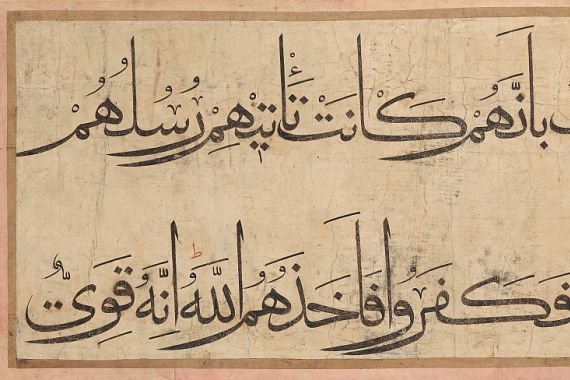 بِاَنَّهُمْ كَانَتْ تَأْتِيهِمْ رُسُلُهُمْ
فَكَفَرُوا فَاَخَذَهُمُ اللّٰهُ اِنَّهُ قَوِيٌّ